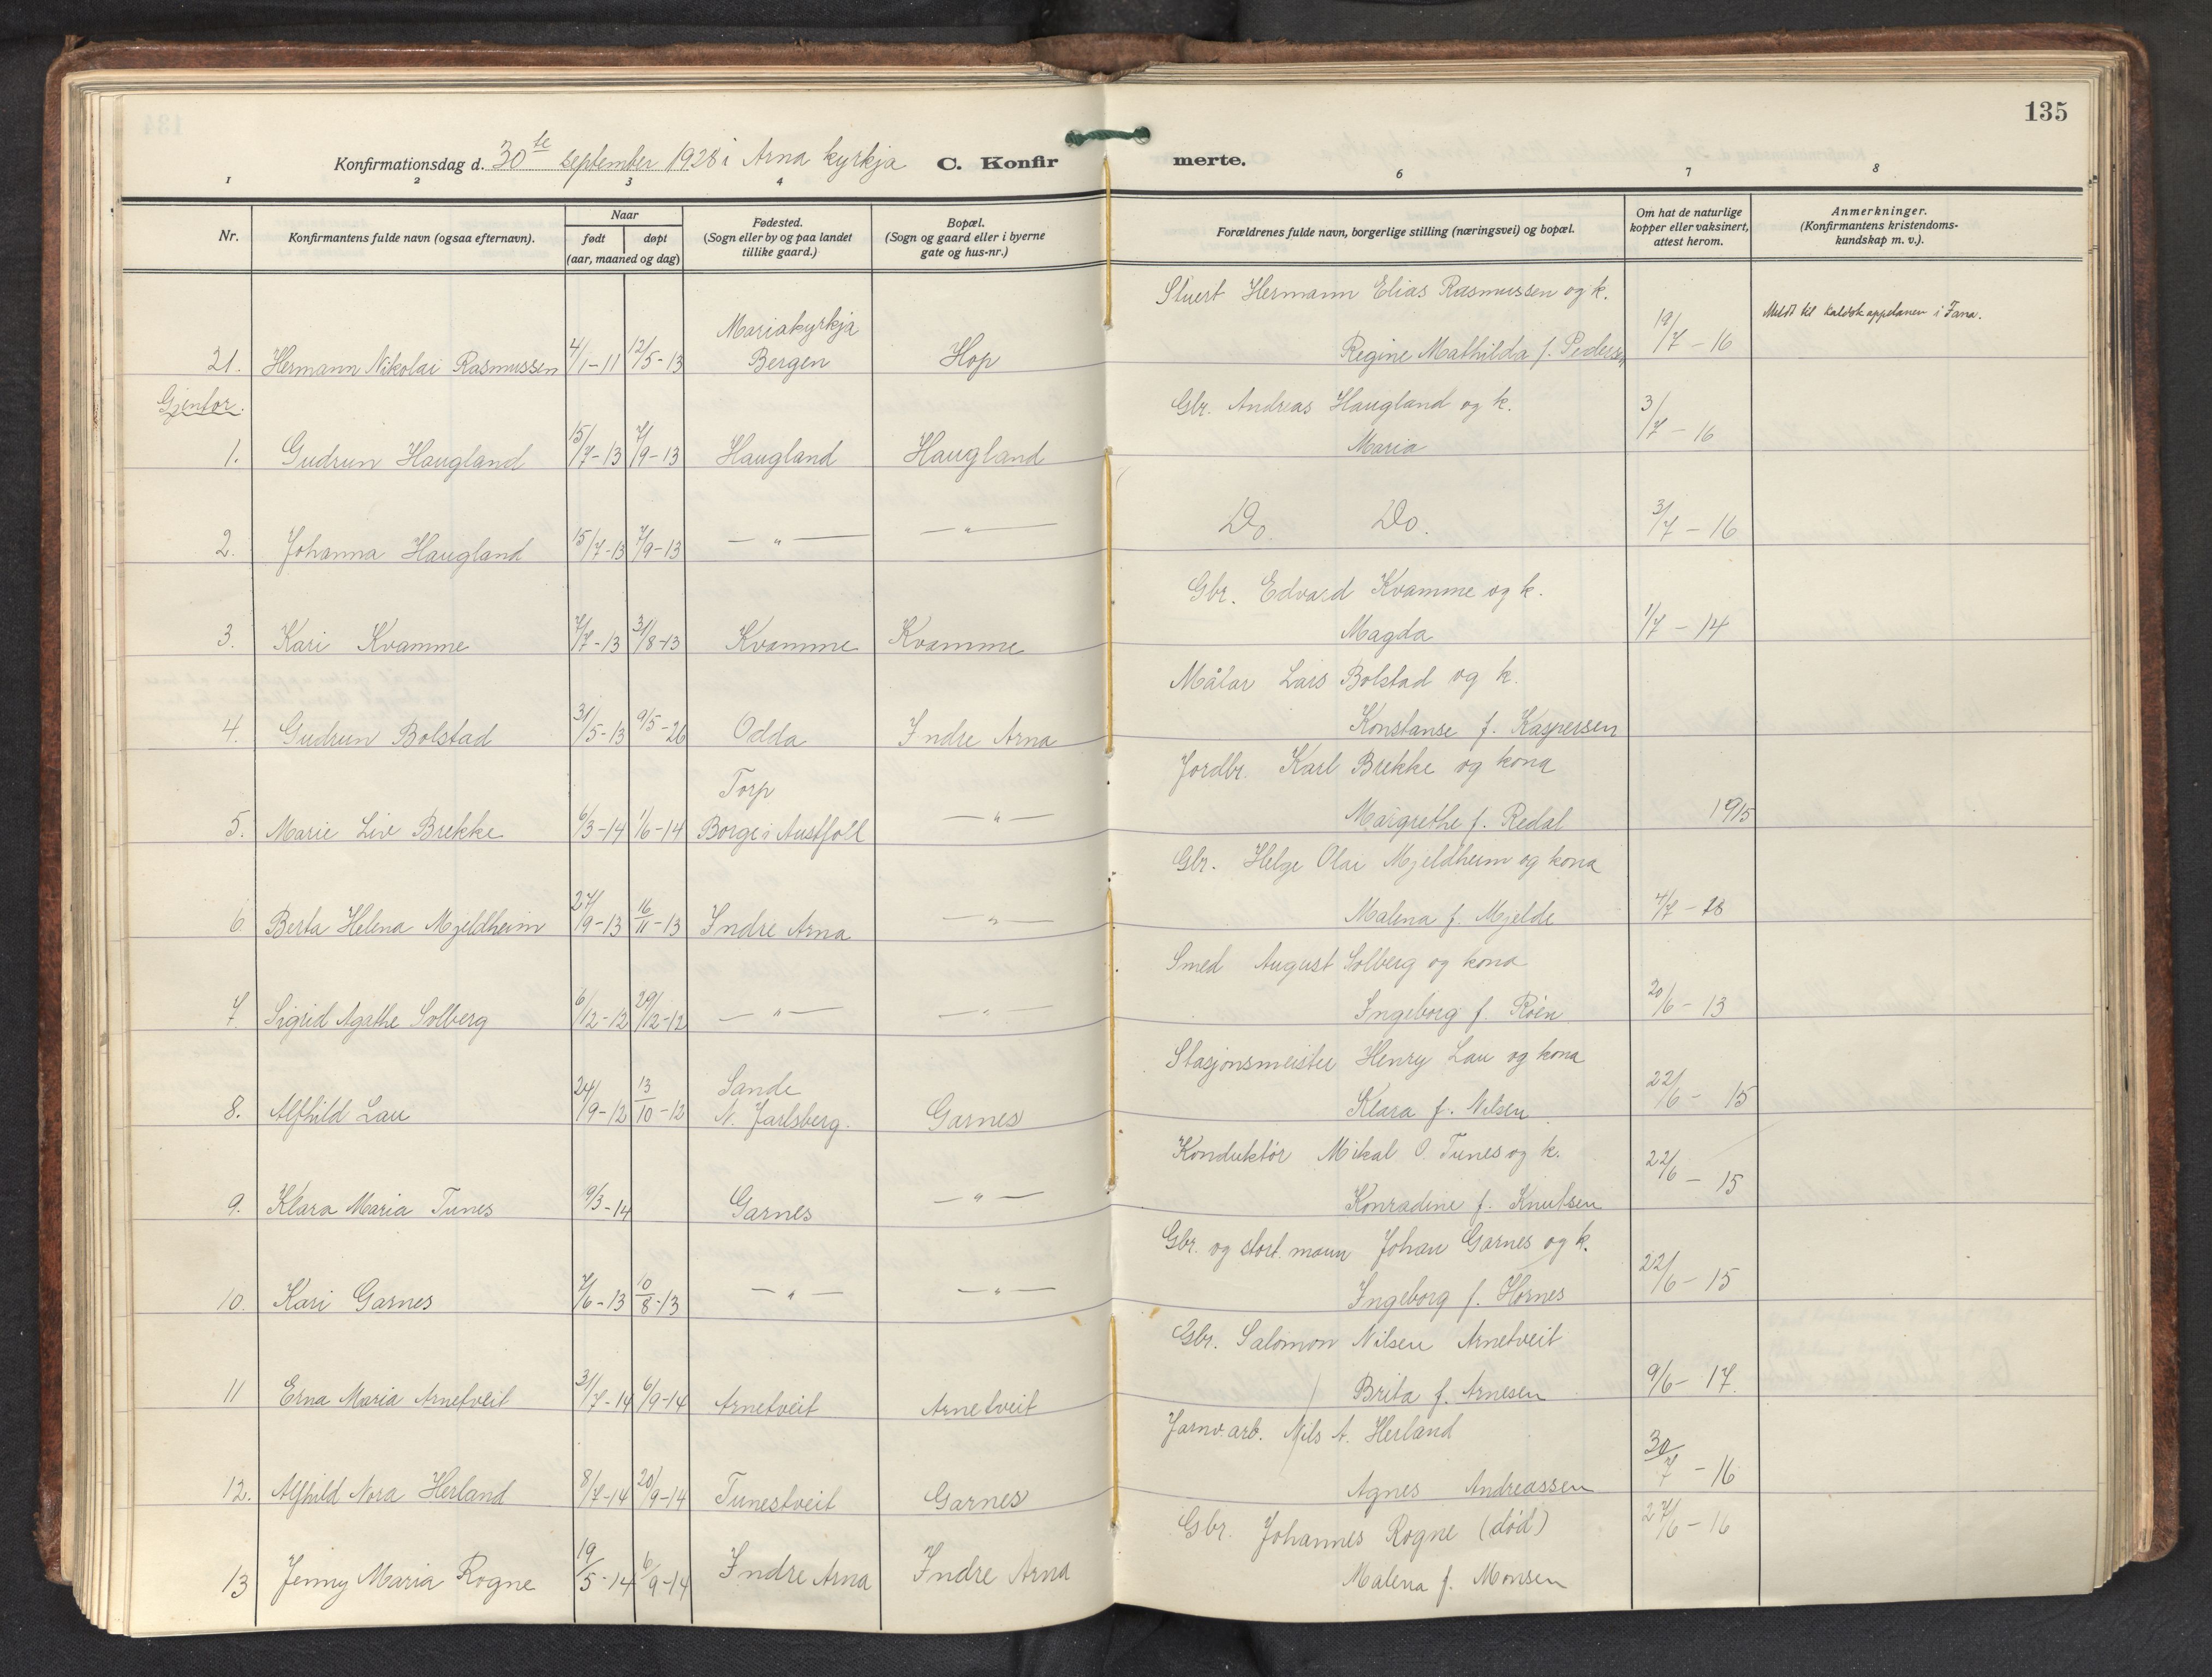 135
Konfirmationsdag d. 30te september 1928 i Arna kyrkja C. Konfir merte.
1 2 3 4 6 7 8
Nr.
Konfirmantens fulde navn (ogsaa efternavn).
Naar
født døpt
(aar, maaned og dag)
Fødested.
(Sogn eller by og paa landet
tillike gaard.)
Bopæl.
(Sogn og gaard eller i byerne
gate og hus-nr.)
Forældrenes fulde navn, borgerlige stilling (næringsvei) og bopæl.
Om hat de naturlige
kopper eller vaksinert,
attest herom.
Anmerkninger.
(Konfirmantens kristendoms-
kundskap m. v.).
Stuert Hermann Elias Rasmussen og k.
21. Hermann Nikolai Rasmussen 4/1-11 12/5-13 Mariakyrkja
Bergen Hop Regine Mathilda f. Pedersen 19/7-16 Meldt til kaldskappelanen i Fana.
Gjentor.
Gbr. Andreas Haugland og k.
1. Gudrun Haugland 15/7-13 7/9-13 Haugland Haugland Maria 3/7-16
2. Johanna Haugland 15/7-13 7/9-13 — " — — " — Do. Do. 3/7-16
Gbr. Edvard Kvamme og k.
3. Kari Kvamme 7/7-13 31/8-13 Kvamme Kvamme Magda 1/7-14
Målar Lars Bolstad og k.
4. Gudrun Bolstad 31/5-13 9/5-26 Odda Indre Arna Konstanse f. Kaspersen
Jordbr. Karl Brekke og kona
5. Marie Liv Brekke 6/3-14 1/6-14 Torp
Borge i Austfoll — " — Margrethe f. Redal 1915
Gbr. Helge Olai Mjeldheim og kona
6. Berta Helena Mjeldheim 27/9-13 16/11-13 Indre Arna — " — Malena f. Mjelde 4/7-18
Smed August Solberg og kona
7. Sigrid Agathe Solberg 6/12-12 29/12-12 — " — — " — Ingeborg f. Röen 20/6-13
Stasjonsmeister Henry Lau og kona
8. Alfhild Lau 24/9-12 13/10-12 Sande
N. Jarlsberg. Garnes Klara f. Nilsen 22/6-15
Konduktör Mikal O. Tunes og k.
9. Klara Maria Tunes 9/3-14 Garnes — " — Konradine f. Knutsen 22/6-15
Gbr. og stort. mann Johan Garnes og k.
10. Kari Garnes 7/6-13 10/8-13 — " — — " — Ingeborg f. Hornes 22/6-15
Gbr. Salomon Nilsen Arnetveit
11 Erna Maria Arnetveit 31/7-14 6/9-14 Arnetveit Arnetveit Brita f. Arnesen 9/6-17.
Jarnv. arb. Nils A. Herland
12. Alfhild Nora Herland 8/7-14 20/9-14 Tunestveit Garnes Agnes Andreassen 30/7-16
Gbr. Johannes Rogne (död)
13 Jenny Maria Rogne 19/5-14 6/9-14 Indre Arna Indre Arna Malena f. Monsen 27/6-16